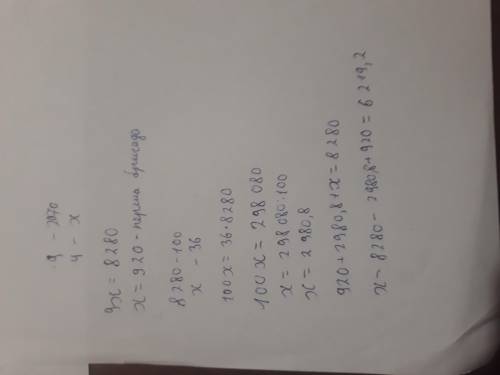 9 - 2070
4 - x
9x = 8280
x = 920 - перша бригада
8280 - 100
x - 36
100x = 36·8280
100x = 298 080
x = 298 080:100
x = 2 980,8
920 + 2980,8 + x = 8280
x - 8280 - 2980,8 + 920 = 6 219,2